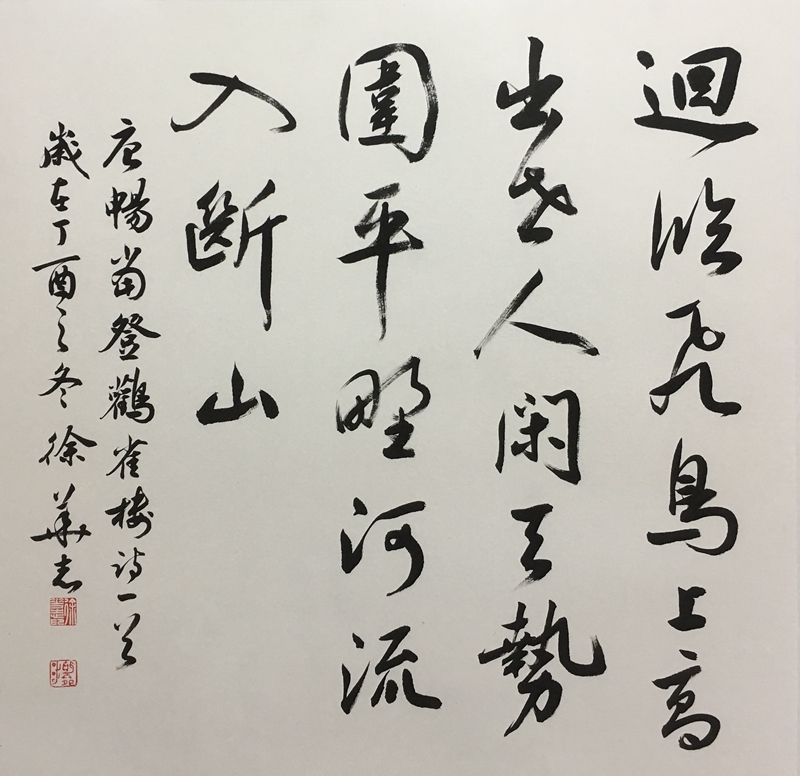 迴臨飛鳥上高
出世人閑天勢
圍平野河流
入斷山
唐暢當登鸛雀樓詩一首
歲在丁酉之冬徐華志